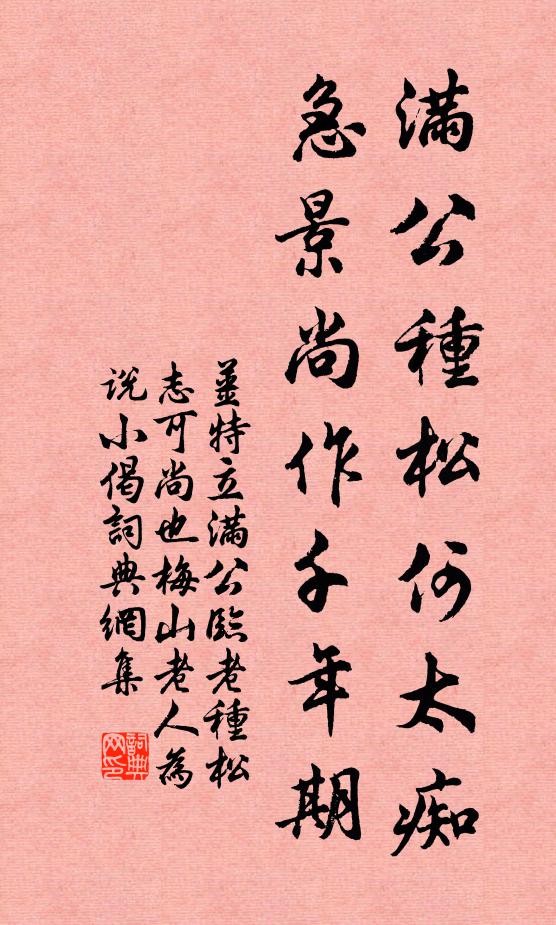 滿公種松何太痴
急景尚作千年期
薑特立滿公臨老種松
志可尚也梅山老人為
說小偈詞典網集
詞典網印